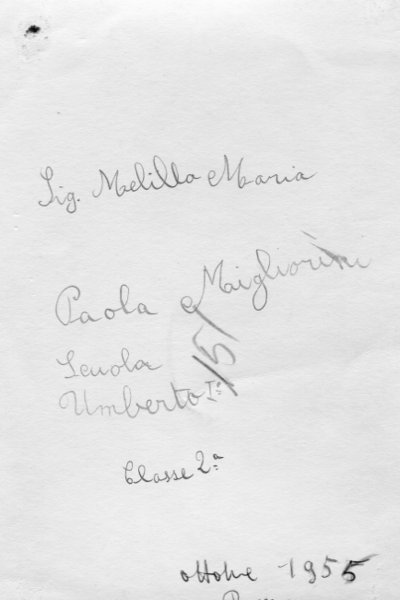 Sig. Melilla Maria
Paola Migliorini
/5/
Scuola
Umberto Iº
Classe 2ª
ottobre 1955